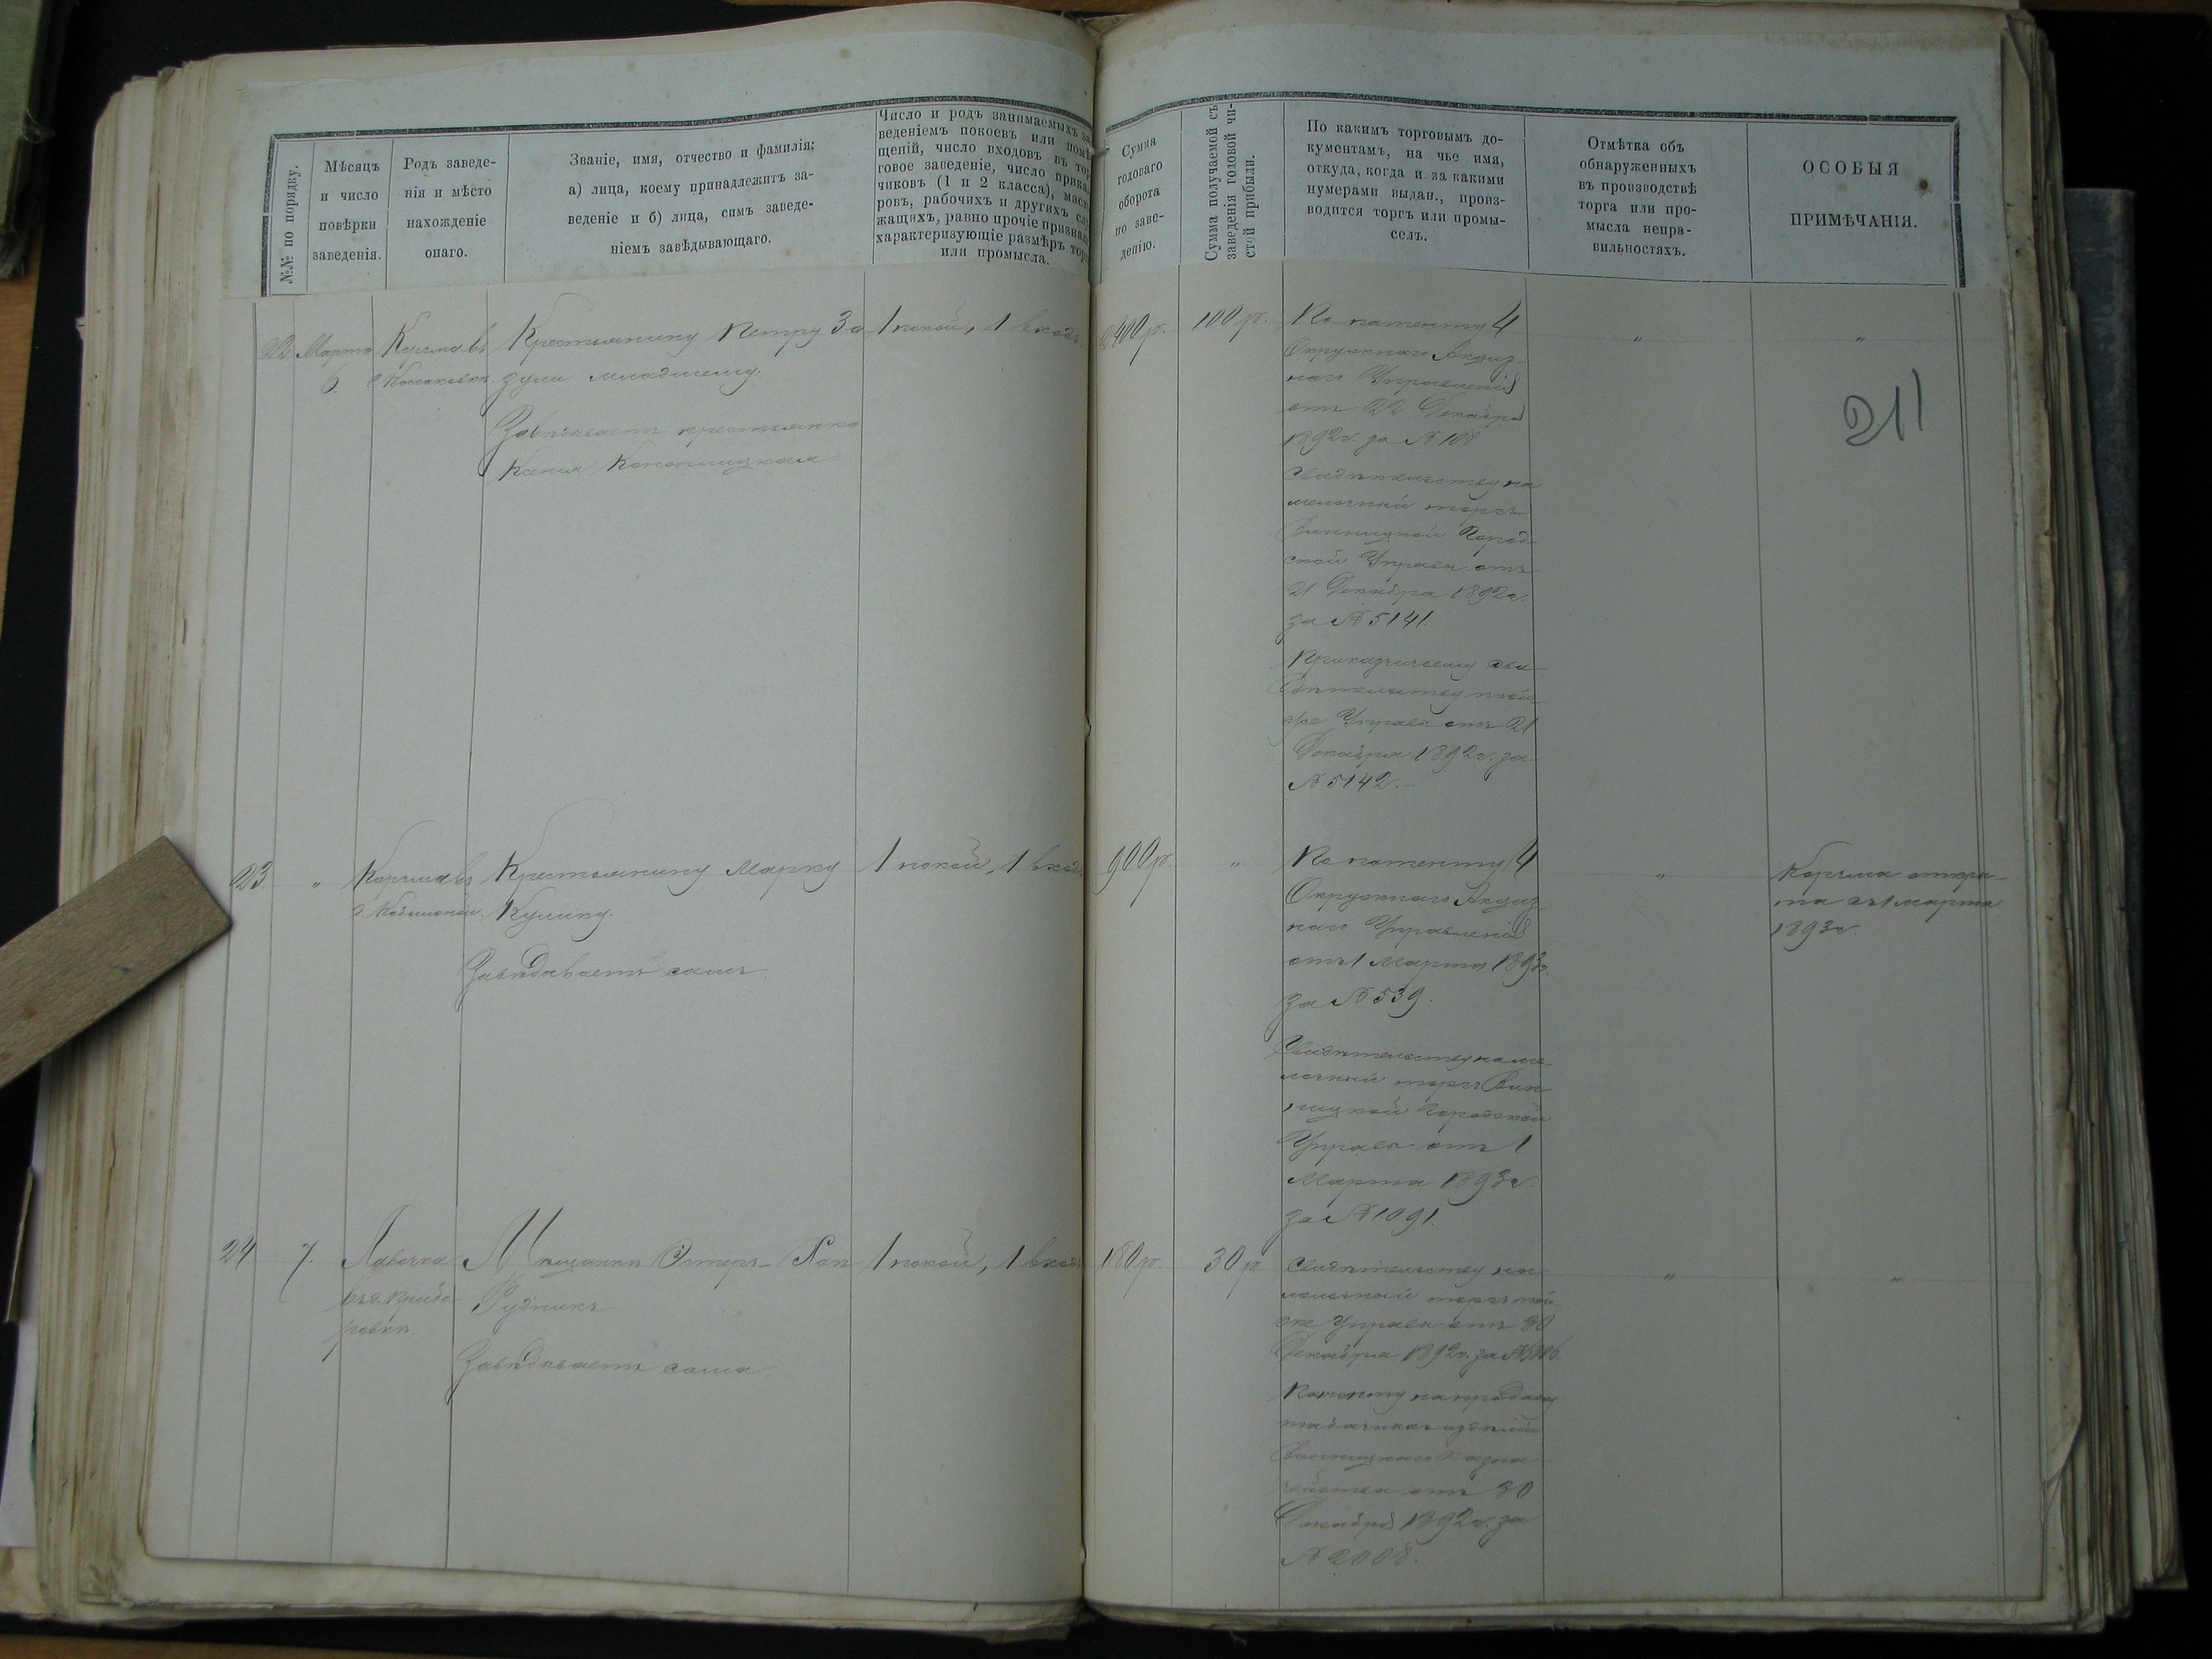 №№ по порядку.
Мѣсяцъ
и число
повѣрки
заведенія.
Родъ заведе-
нія и мѣсто
нахожденіе
онаго.
Званіе, имя, отчество и фамилія:
а) лица, коему принадлежитъ за-
веденіе и б) лица, симъ заведе-
ніемъ завѣдывающаго.
Число и родъ занимаемыхъ за
веденіемъ покоевъ или помѣ
щеній, число входовъ въ тор
говое заведеніе, число прика
чиковъ (1 и 2 класса), масте
ровъ, рабочихъ и другихъ слу
жащихъ, равно прочіе признаки
характеризующіе размѣръ торг
или промысла.
Сумма
годоваго
оборота
по заве-
денію.
Сумма получаемой съ
заведенія годовой чи-
стой прибыли.
По какимъ торговымъ до-
кументамъ, на чье имя,
откуда, когда и за какими
нумерами выдан., произ-
водится торгъ или промы-
селъ.
Отмѣтка объ
обнаруженныхъ
въ производствѣ
торга или про-
мысла непра-
вильностяхъ.
ОСОБЫЯ
ПРИМѢЧАНІЯ.
211
22 Марта Корчма въ Крестьянину Петру За 1 покой, 1 входъ 400 р. 100 р.
6 зули младшему.
Завѣдываетъ крестьянка
Ксенія
По патенту 4
Окружнаго Акциз-
наго Управленія
отъ 22 Декабря
1892 г. за № 108
Свидѣтельству на
мелочный торгъ
Винницкой Город-
ской Управы отъ
21 Декабря 1892 г.
за № 5141.
Приказчичьему сви-
дѣтельству той-
же Управы отъ 21
Декабря 1892 г. за
№ 5142.
23 " Корчма въ Крестьянину Марку 1 покой, 1 входъ 900 р. "
Кулику.
Завѣдываетъ самъ
По патенту 4
Окружнаго Акциз-
наго Управленія
отъ 1 Марта 1893 г.
за № 539.
Свидѣтельству на ме-
лочный торгъ Вин-
ницкой Городской
Управы отъ 1
Марта 1893 г.
за № 1091.
Корчма откры-
та съ 1 марта
1893 г.
24 7. Лавочка Мѣщанки Эстеръ- 1 покой, 1 входъ 180 р. 30 р
Рудникъ
Завѣдываетъ сама
Свидѣтельству на
мелочный торгъ той
же Управы отъ 30
Декабря 1892 г. за №
Патенту на продажу
табачныхъ издѣлій
Винницкаго Казна
чейства отъ 30
Декабря 1892 г. за
№ 2008.